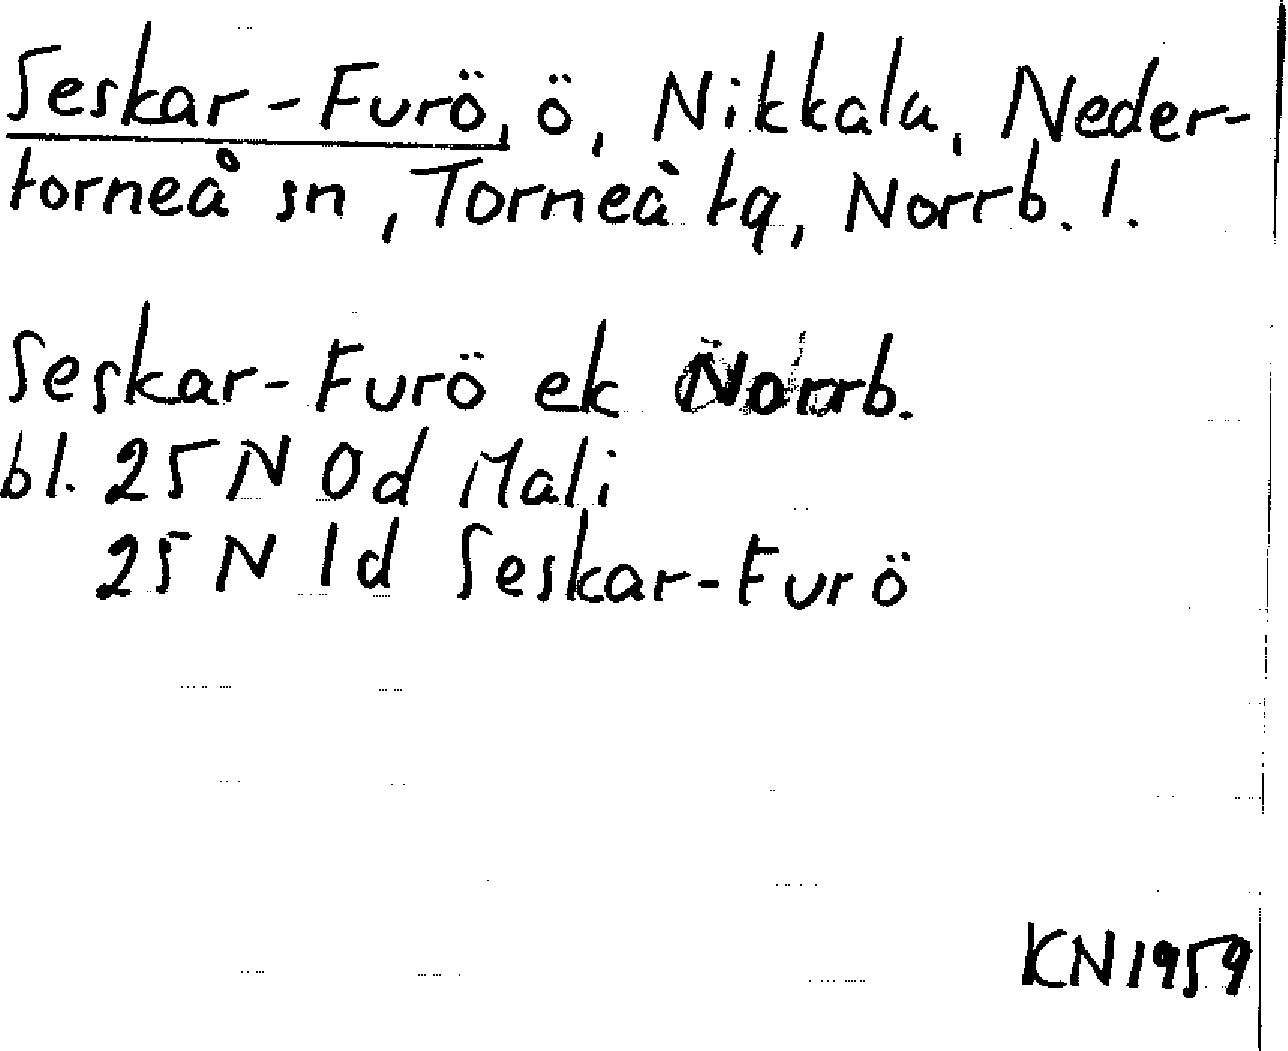 Seskar-Furö, ö, Nikkala, Neder-
torneå sn, Torneå tg, Norrb. l.
Seskar-Furö ek Norrb.
bl. 25 N 0d Mali
25 N 1d Seskar-Furö
KN1959